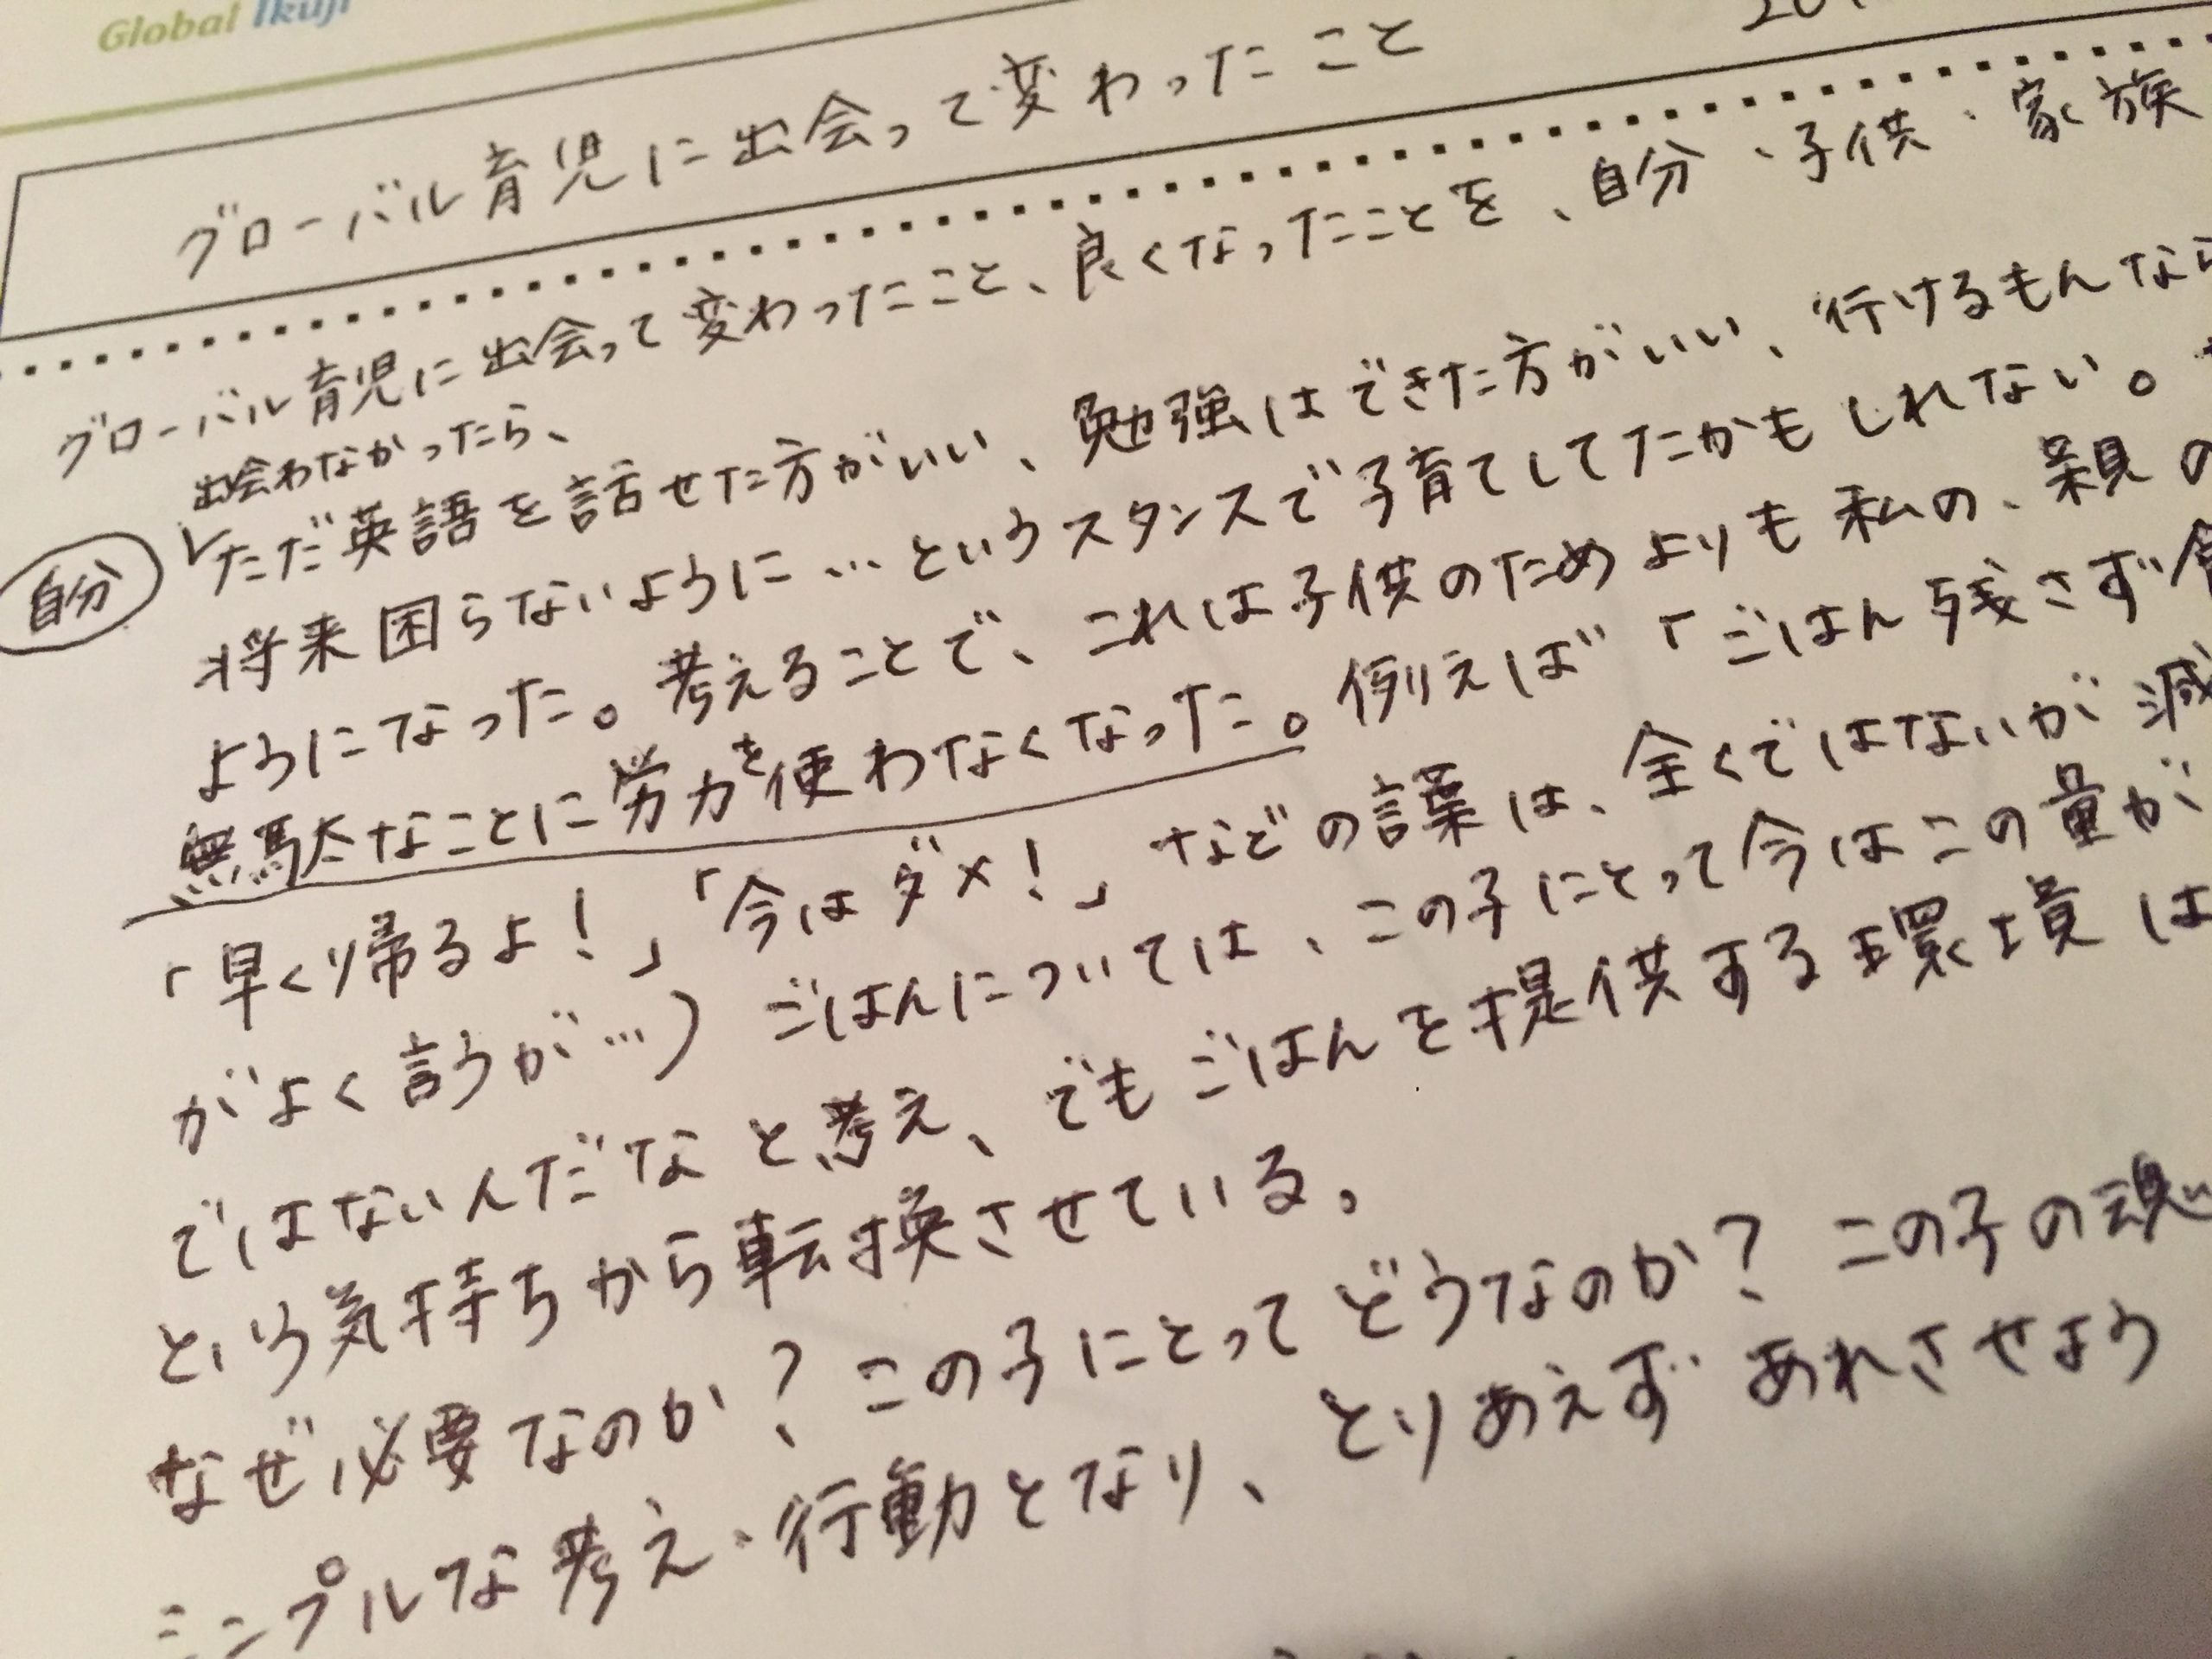 Global Ikuji
グローバル育児に出会って変わったこと
グローバル育児に出会って変わったこと、良くなったことを、自分・子供・家族
出会わなかったら、
自分
ただ英語を話せた方がいい、勉強はできた方がいい、行けるもんなら
将来困らないように…というスタンスで子育てしてたかもしれない。
ようになった。考えることで、これは子供のためよりも私の、親の
無駄なことに労力を使わなくなった。例えば「ごはん残さず
「早く帰るよ!」「今はダメ!」などの言葉は、全くではないが減
がよく言うが…)ごはんについては、この子にとって今はこの量が
ではないんだなと考え、でもごはんを提供する環境は
という気持ちから転換させている。
なぜ必要なのか?この子にとってどうなのか?この子の魂
シンプルな考え・行動となり、とりあえずあれさせよう